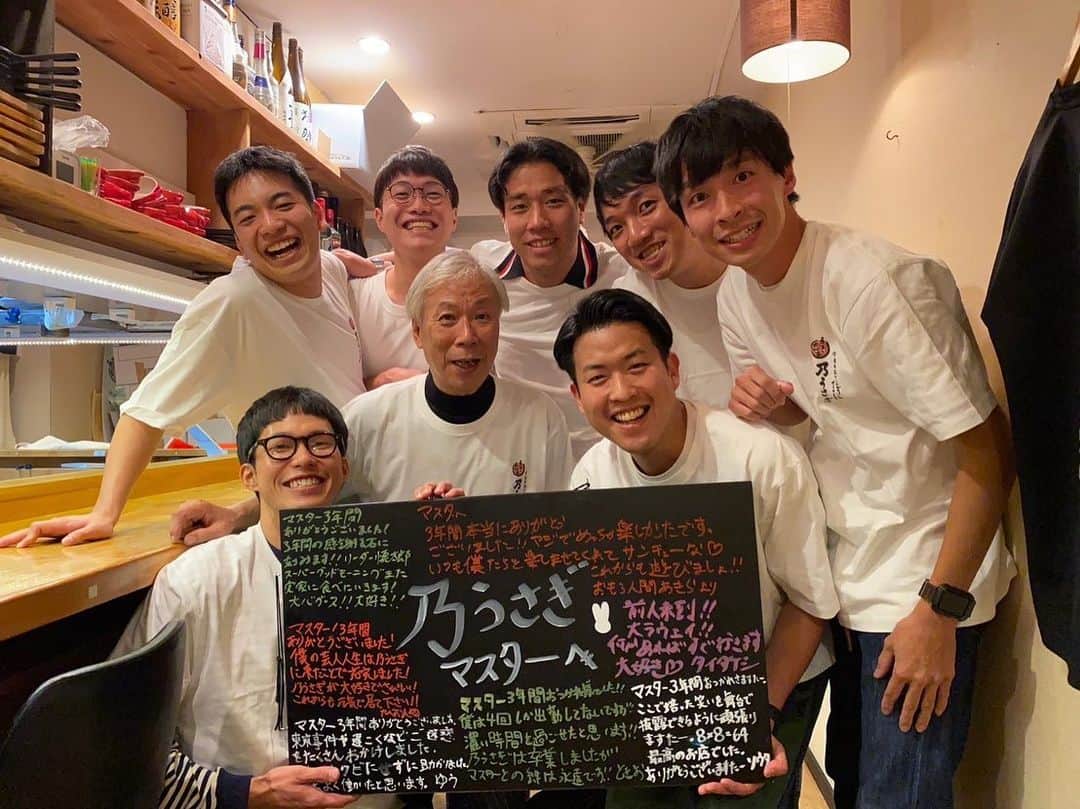 乃うさぎ
マスター3年間
ありがとうございました!
3年間の感謝を石に
リーダー
スーパーグッドモーニング また
大家に食べにいきます!
大好き!!
マスター、
3年間本当にありがとう
ございました!! マジでめっちゃ楽しかったです。
いつも僕たちと楽しませてくれて サンチューな♡
これからも遊びましょ!!
おもろ人間あきらより
乃うさぎ
マスターへ
前人未到!!
大ラウェイ!!
何かあればすぐ行きます
大好き♡ タイダケシ
マスター!3年間
ありがとうございました!
僕の芸人人生は乃うさぎ
に来たことで
乃うさぎが大好きで
これからも元気に居て下さい!
マスター3年間ありがとうございました。
東京事件や遅こくなどご迷惑
をたくさんおかけしました。
クビにせずに
働いたと思います。ゆう
マスター3年間おつかれ様でした!!
僕は4回しか出勤してないですが
濃い時間を過ごせたと思います!!
乃うさぎは卒業しましたが
マスターとの絆は永遠です!!
マスター3年間おつかれさまでした
ここで培った笑いを舞台で
披露できるように頑張り
ますたー。8×8=64
最高のお店でした。
ありがとうございましたー ソウタ